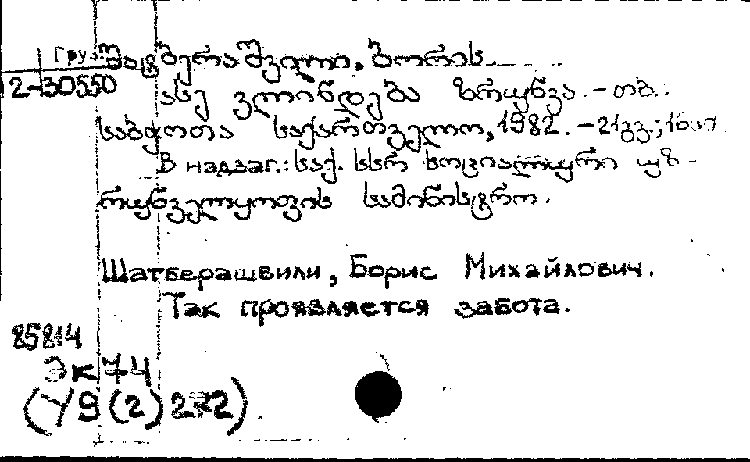 Груз
2-30550
შატბერაშვილი, ბორის.
ასე ვლინდება ზრუნვა. – თბ.:
საბჭოთა საქართველო, 1982. – 21გვ.;
В надзаг.: საქ. სსრ სოციალური უზ-
რუნველყოფის სამინისტრო.
Шатберашвили, Борис Михайлович.
Так проявляется забота.
85814
Эк 74
(Y9(2)272)